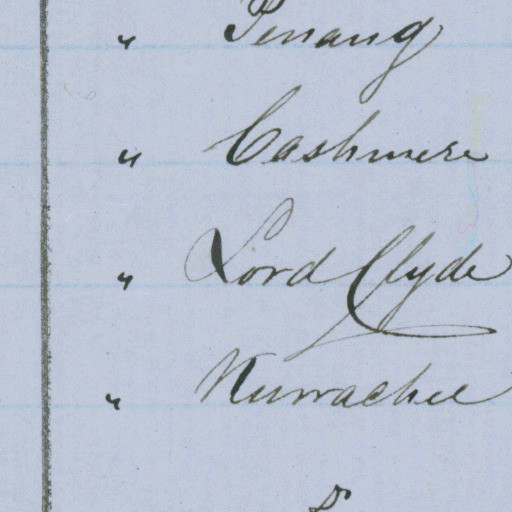 " Penang
" Cashmere
" Lord Clyde
" Kurrachee